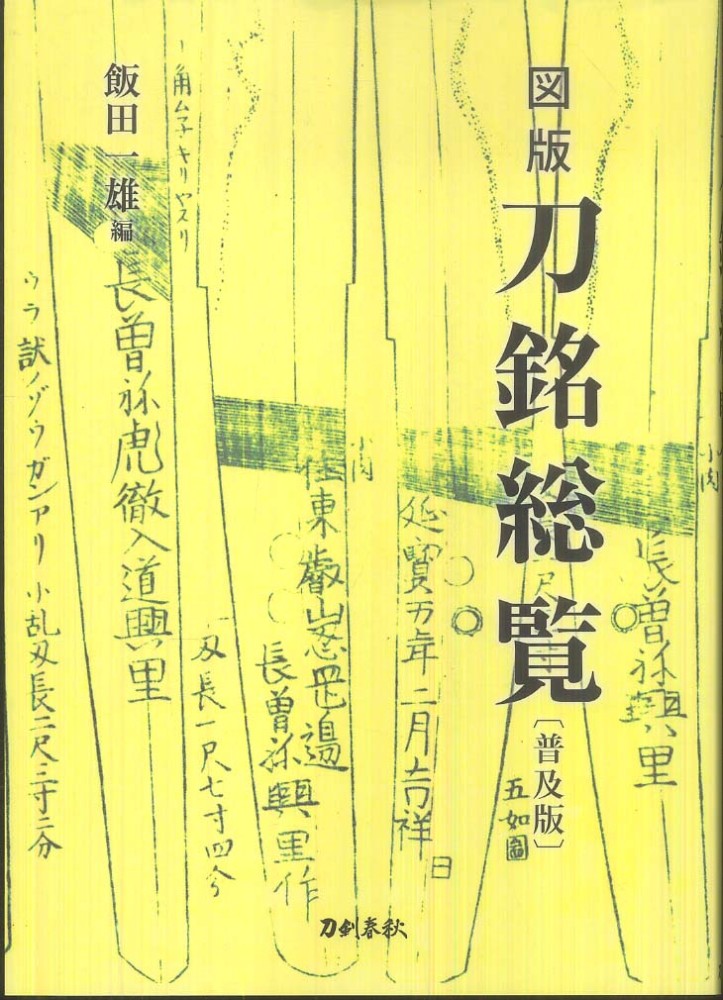 図版
刀銘総覧
〔普及版〕
飯田一雄 編
長曽祢興里
小肉
五如図
延寳五年二月吉祥日
小肉
住東叡山忍岡邊
長曽祢興里作
刄長一尺七寸四分
長曽祢虎徹入道興里
角ムネ キリヤスリ
ウラ 試ノゾウガンアリ 小乱刄長二尺二寸二分
刀剣春秋